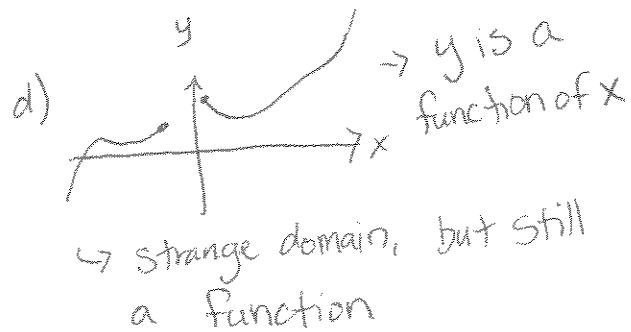 d)
y
x
→ y is a
function of x
↳ strange domain, but still
a function